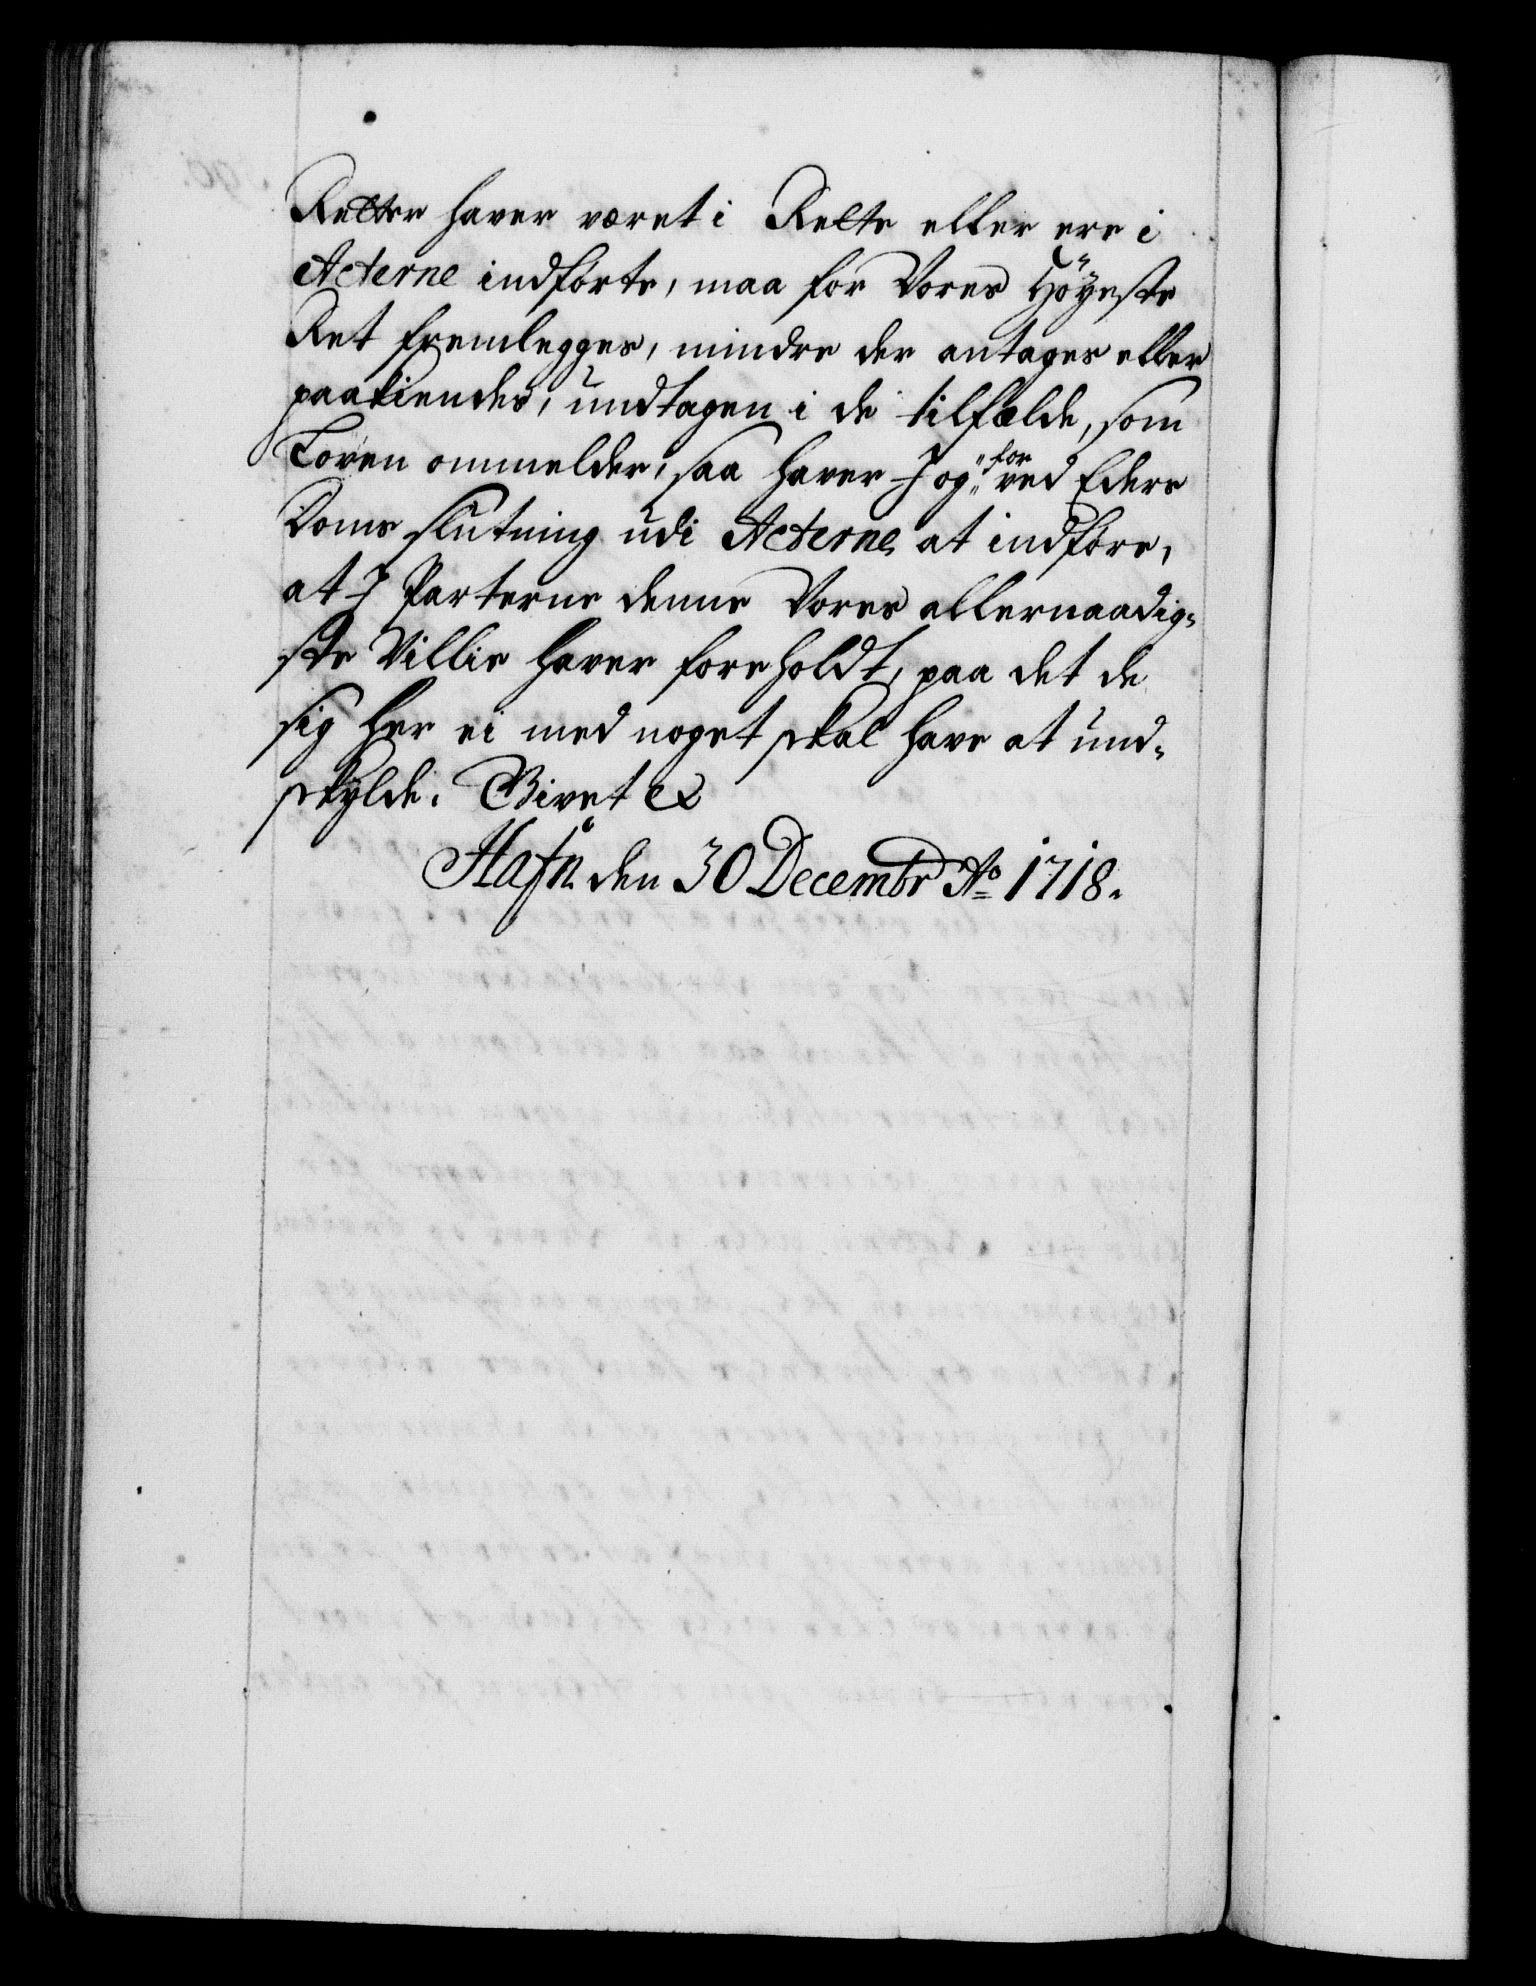 Retter haver været i Rette eller ere i
Acterne indførte, maa for Vores Höyeste
Ret fremlegges, mindre der antages eller
paakiendes, undtagen i de tilfælde, som
Loven ommelder, saa haver I og „for„ ved Eders
Doms slutning udi Acterne at indføre,
at I Parterne denne Vores allernaadig-
ste Villie haver foreholdt, paa det de
sig her ei med noget skal have at und-
skylde. Givet &
Hafn. den 30 Decembr Ao 1718.